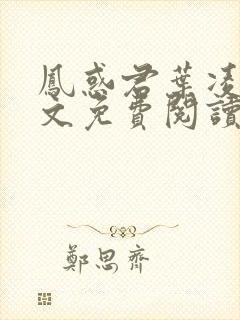 鳳惑君葉凌
文免費閱讀
鄭思齊